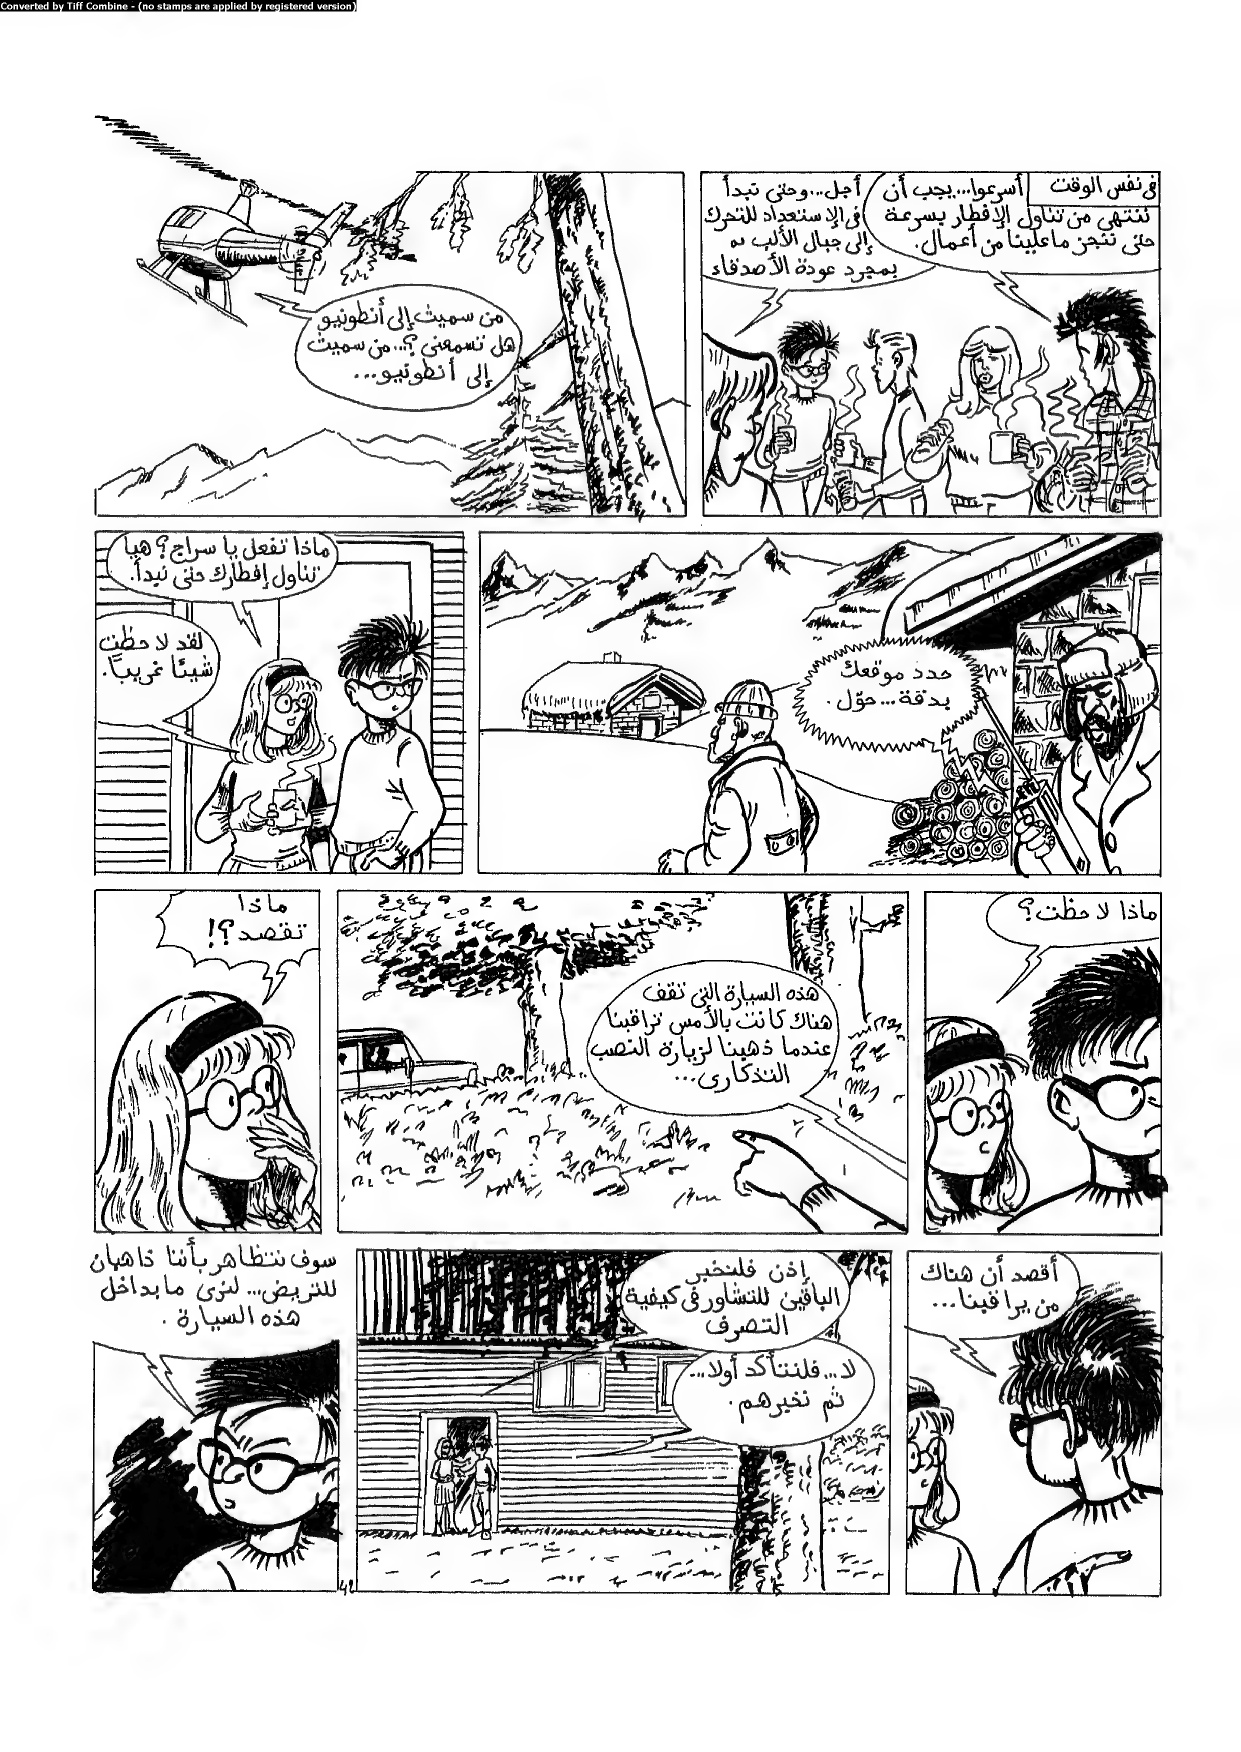 Converted by Tiff Combine - (no stamps are applied by registered version)
فى نفس الوقت
أسرعوا...يجب أن
ننتهى من تناول الإفطار بسرعة
حتى ننجز ما علينا من أعمال.
أجل...وحتى نبدأ
فى الإستعداد للتحرك
إلى جبال الألب
بمجرد عودة الأصدقاء
من سميث إلى أنطونيو
هل تسمعنى؟...من سميث
إلى أنطونيو...
حدد موقعك
بدقة...حوّل.
ماذا تفعل يا سراج؟ هيا
تناول إفطارك حتى نبدأ.
لقد لاحظت
شيئًا غريبًا.
ماذا لاحظت؟
هذه السيارة التى تقف
هناك كانت بالأمس تراقبنا
عندما ذهبنا لزيارة النصب
التذكارى...
ماذا
تقصد؟!
أقصد أن هناك
من يراقبنا...
إذن فلنخبر
الباقين للتشاور فى كيفية
التصرف
لا...فلنتأكد أولا...
ثم نخبرهم.
سوف نتظاهر بأننا ذاهبان
للتريض... لنرى ما بداخل
هذه السيارة.
42